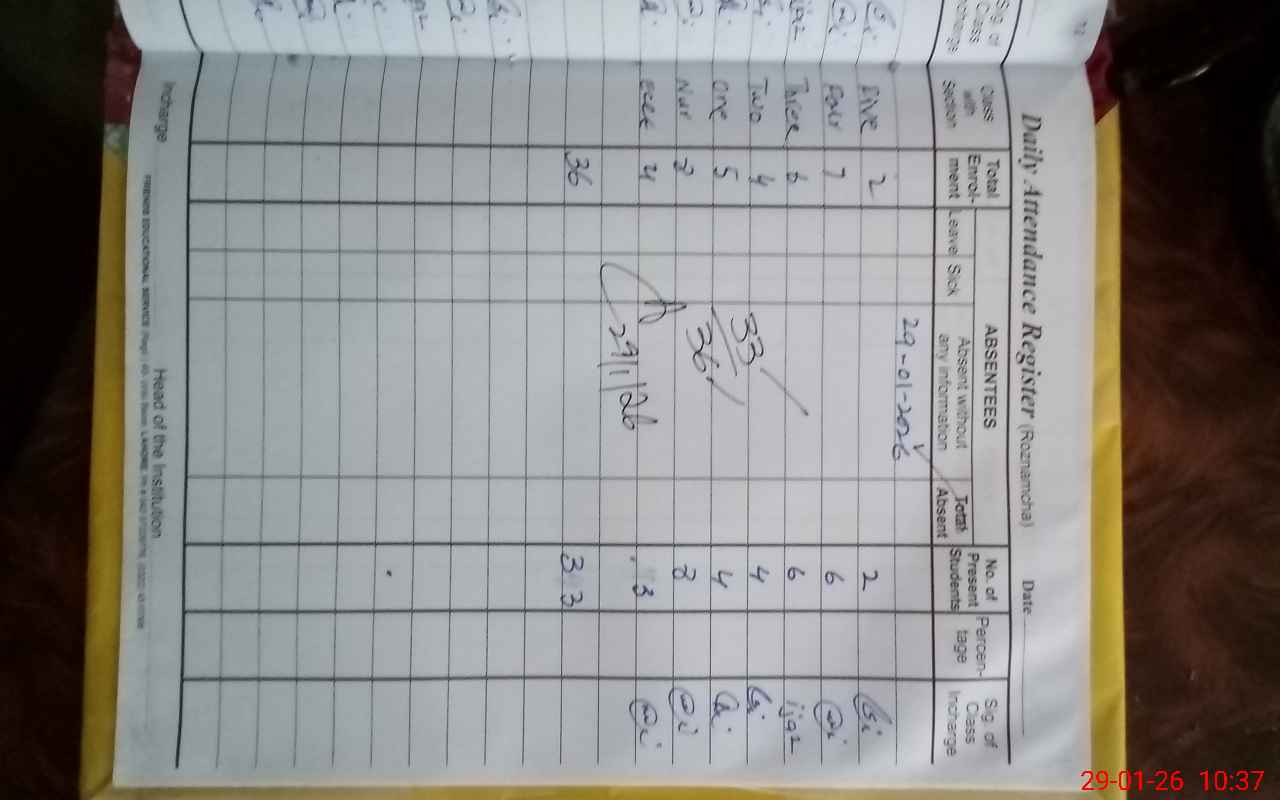 Daily Attendance Register (Roznamcha) Date
Class with Section Total Enrol-ment ABSENTEES No. of Present Students Percen-tage Sig. of Class Incharge
Leave Sick Absent without any information Total Absent
29-01-2026
Five 2 2
Four 7 6
Three 6 6 ijaz
Two 4 4
One 5 4
Nur 8 8
ECCE 4 3
36 33
33
36
29/1/26
Incharge Head of the Institution
FRIENDS EDUCATIONAL SERVICE
Sig. of Class Incharge
29-01-26 10:37